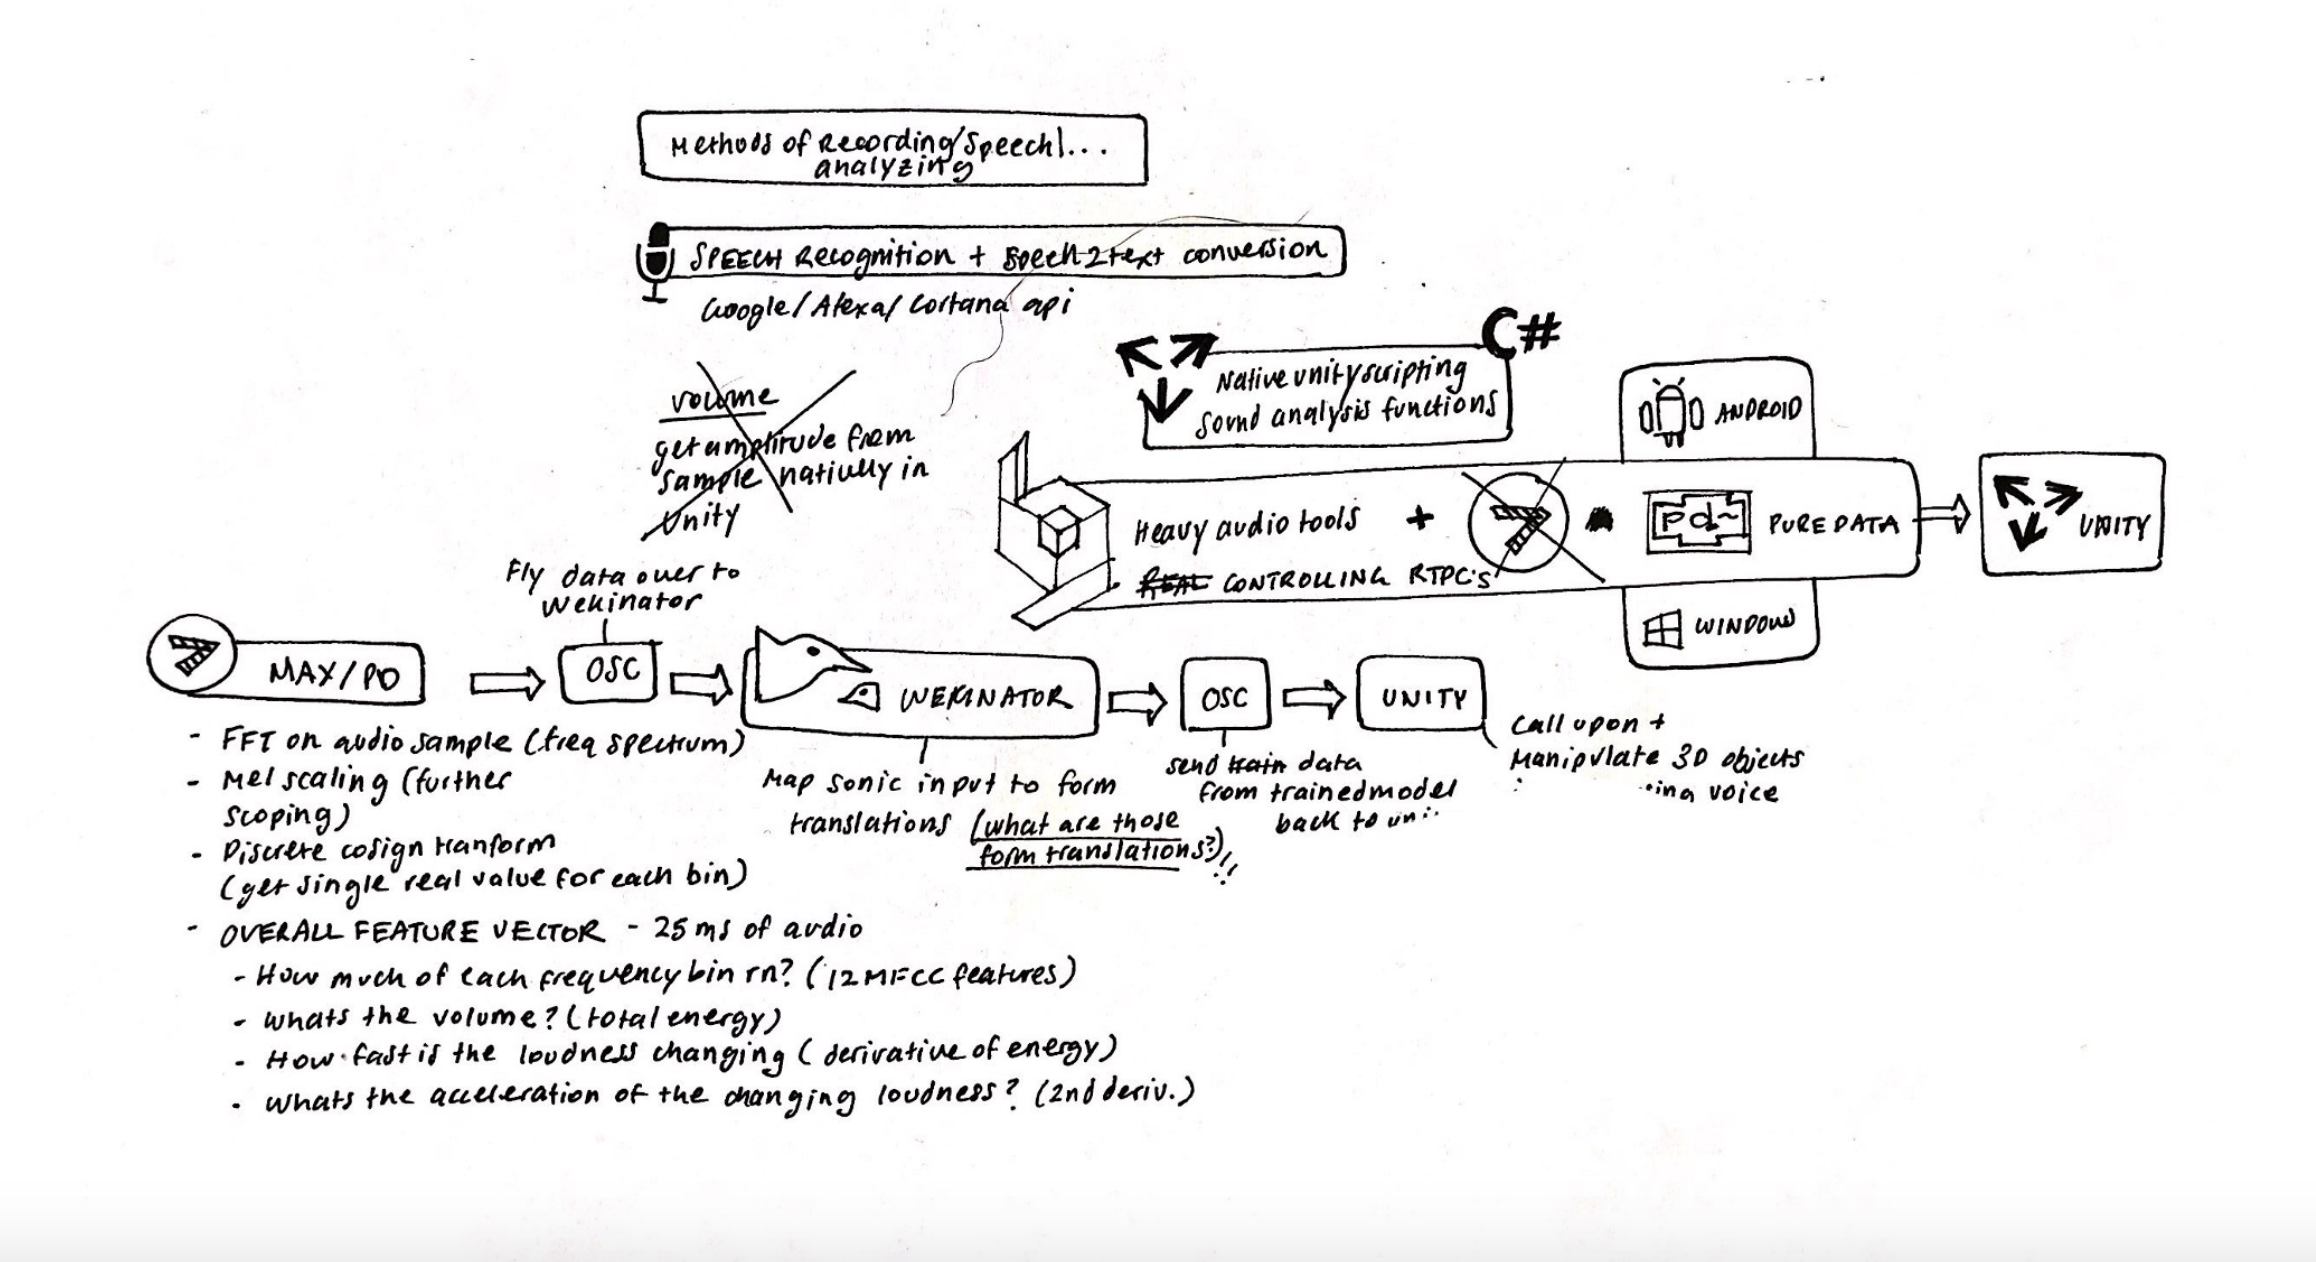 Methods of Recording/Speech/...
analyzing
SPEECH Recognition + Speech2text conversion
Google/Alexa/Cortana api
C#
Native unity scripting
Sound analysis functions
volume
get amplitude from
sample nativelly in
Unity
ANDROID
Heavy audio tools + pd~ PURE DATA
REAL CONTROLLING RTPC's
UNITY
WINDOWS
Fly data over to
Wekinator
MAX/PD
OSC
WEKINATOR
OSC
UNITY
- FFT on audio sample (freq spectrum)
- Mel scaling (further
scoping)
- Discrete cosign tranform
(get single real value for each bin)
- OVERALL FEATURE VECTOR - 25 ms of audio
- How much of each frequency bin rn? (12 MFCC features)
- whats the volume? (total energy)
- How fast is the loudness changing (derivative of energy)
- whats the acceleration of the changing loudness? (2nd deriv.)
Map sonic input to form
translations (what are those
form translations?)!!
send train data
from trained model
back to
Call upon +
Manipulate 3D objects
voice